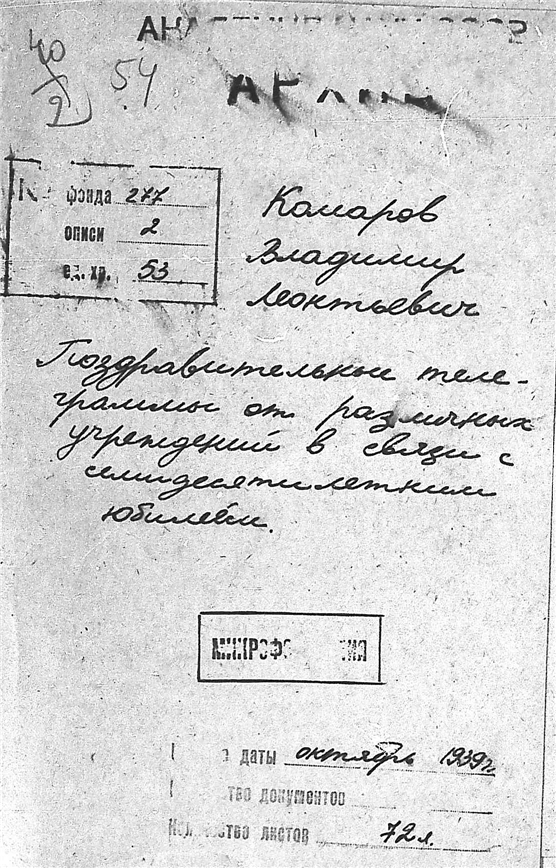 40
2
54
фонда 277
описи 2
ед. хр. 53
Комаров
Владимир
Леонтьевич
Поздравительные теле-
граммы от различных
учреждений в связи с
семидесятилетним
юбилеем.
даты октябрь 1939 г.
документов
листов 72 л.